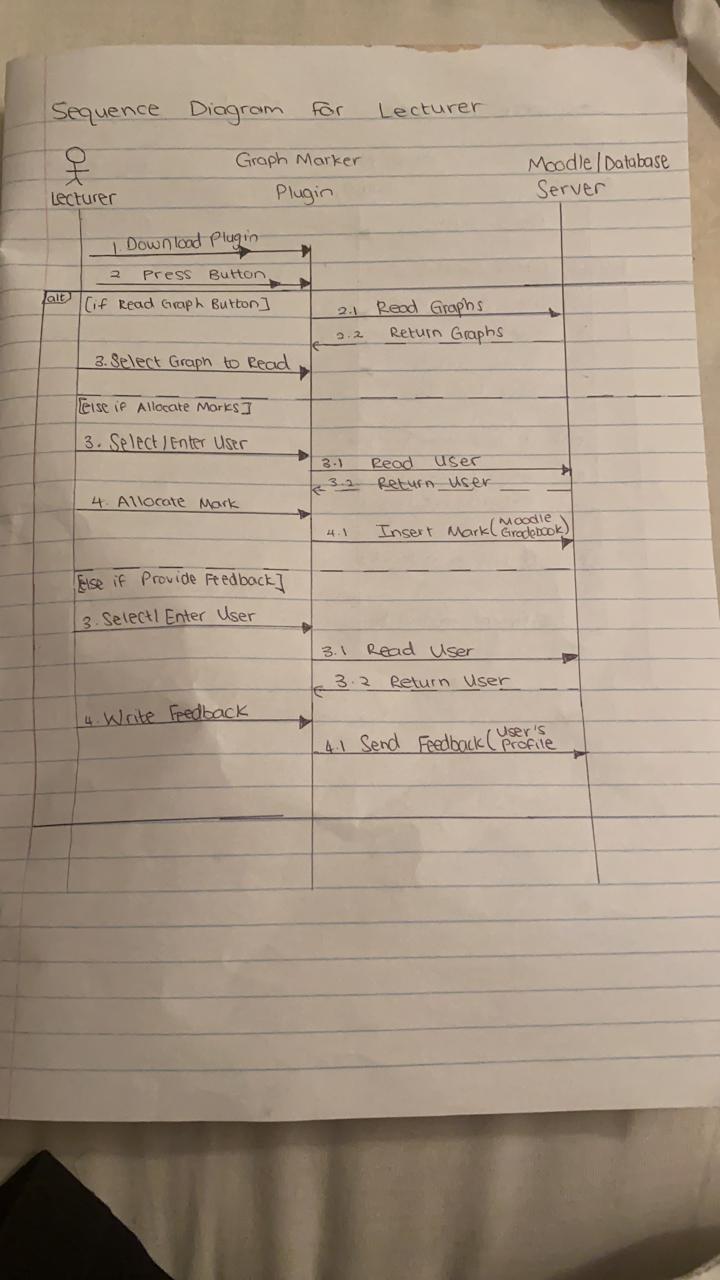 Sequence Diagram For Lecturer
Lecturer
Graph Marker
Plugin
Moodle/Database
Server
1. Download Plugin
2 Press Button
alt
[if Read Graph Button]
2.1 Read Graphs
2.2 Return Graphs
3. Select Graph to Read
[else if Allocate Marks]
3. Select/Enter User
3.1 Read User
3.2 Return User
4. Allocate Mark
4.1 Insert Mark(Moodle
Gradebook)
[Else if Provide Feedback]
3. Select/Enter User
3.1 Read User
3.2 Return User
4. Write Feedback
4.1 Send Feedback(User's
Profile